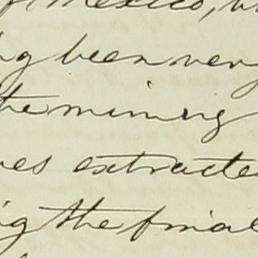 of Mexico, w
ng been very
the mining
es extracte
ng the final